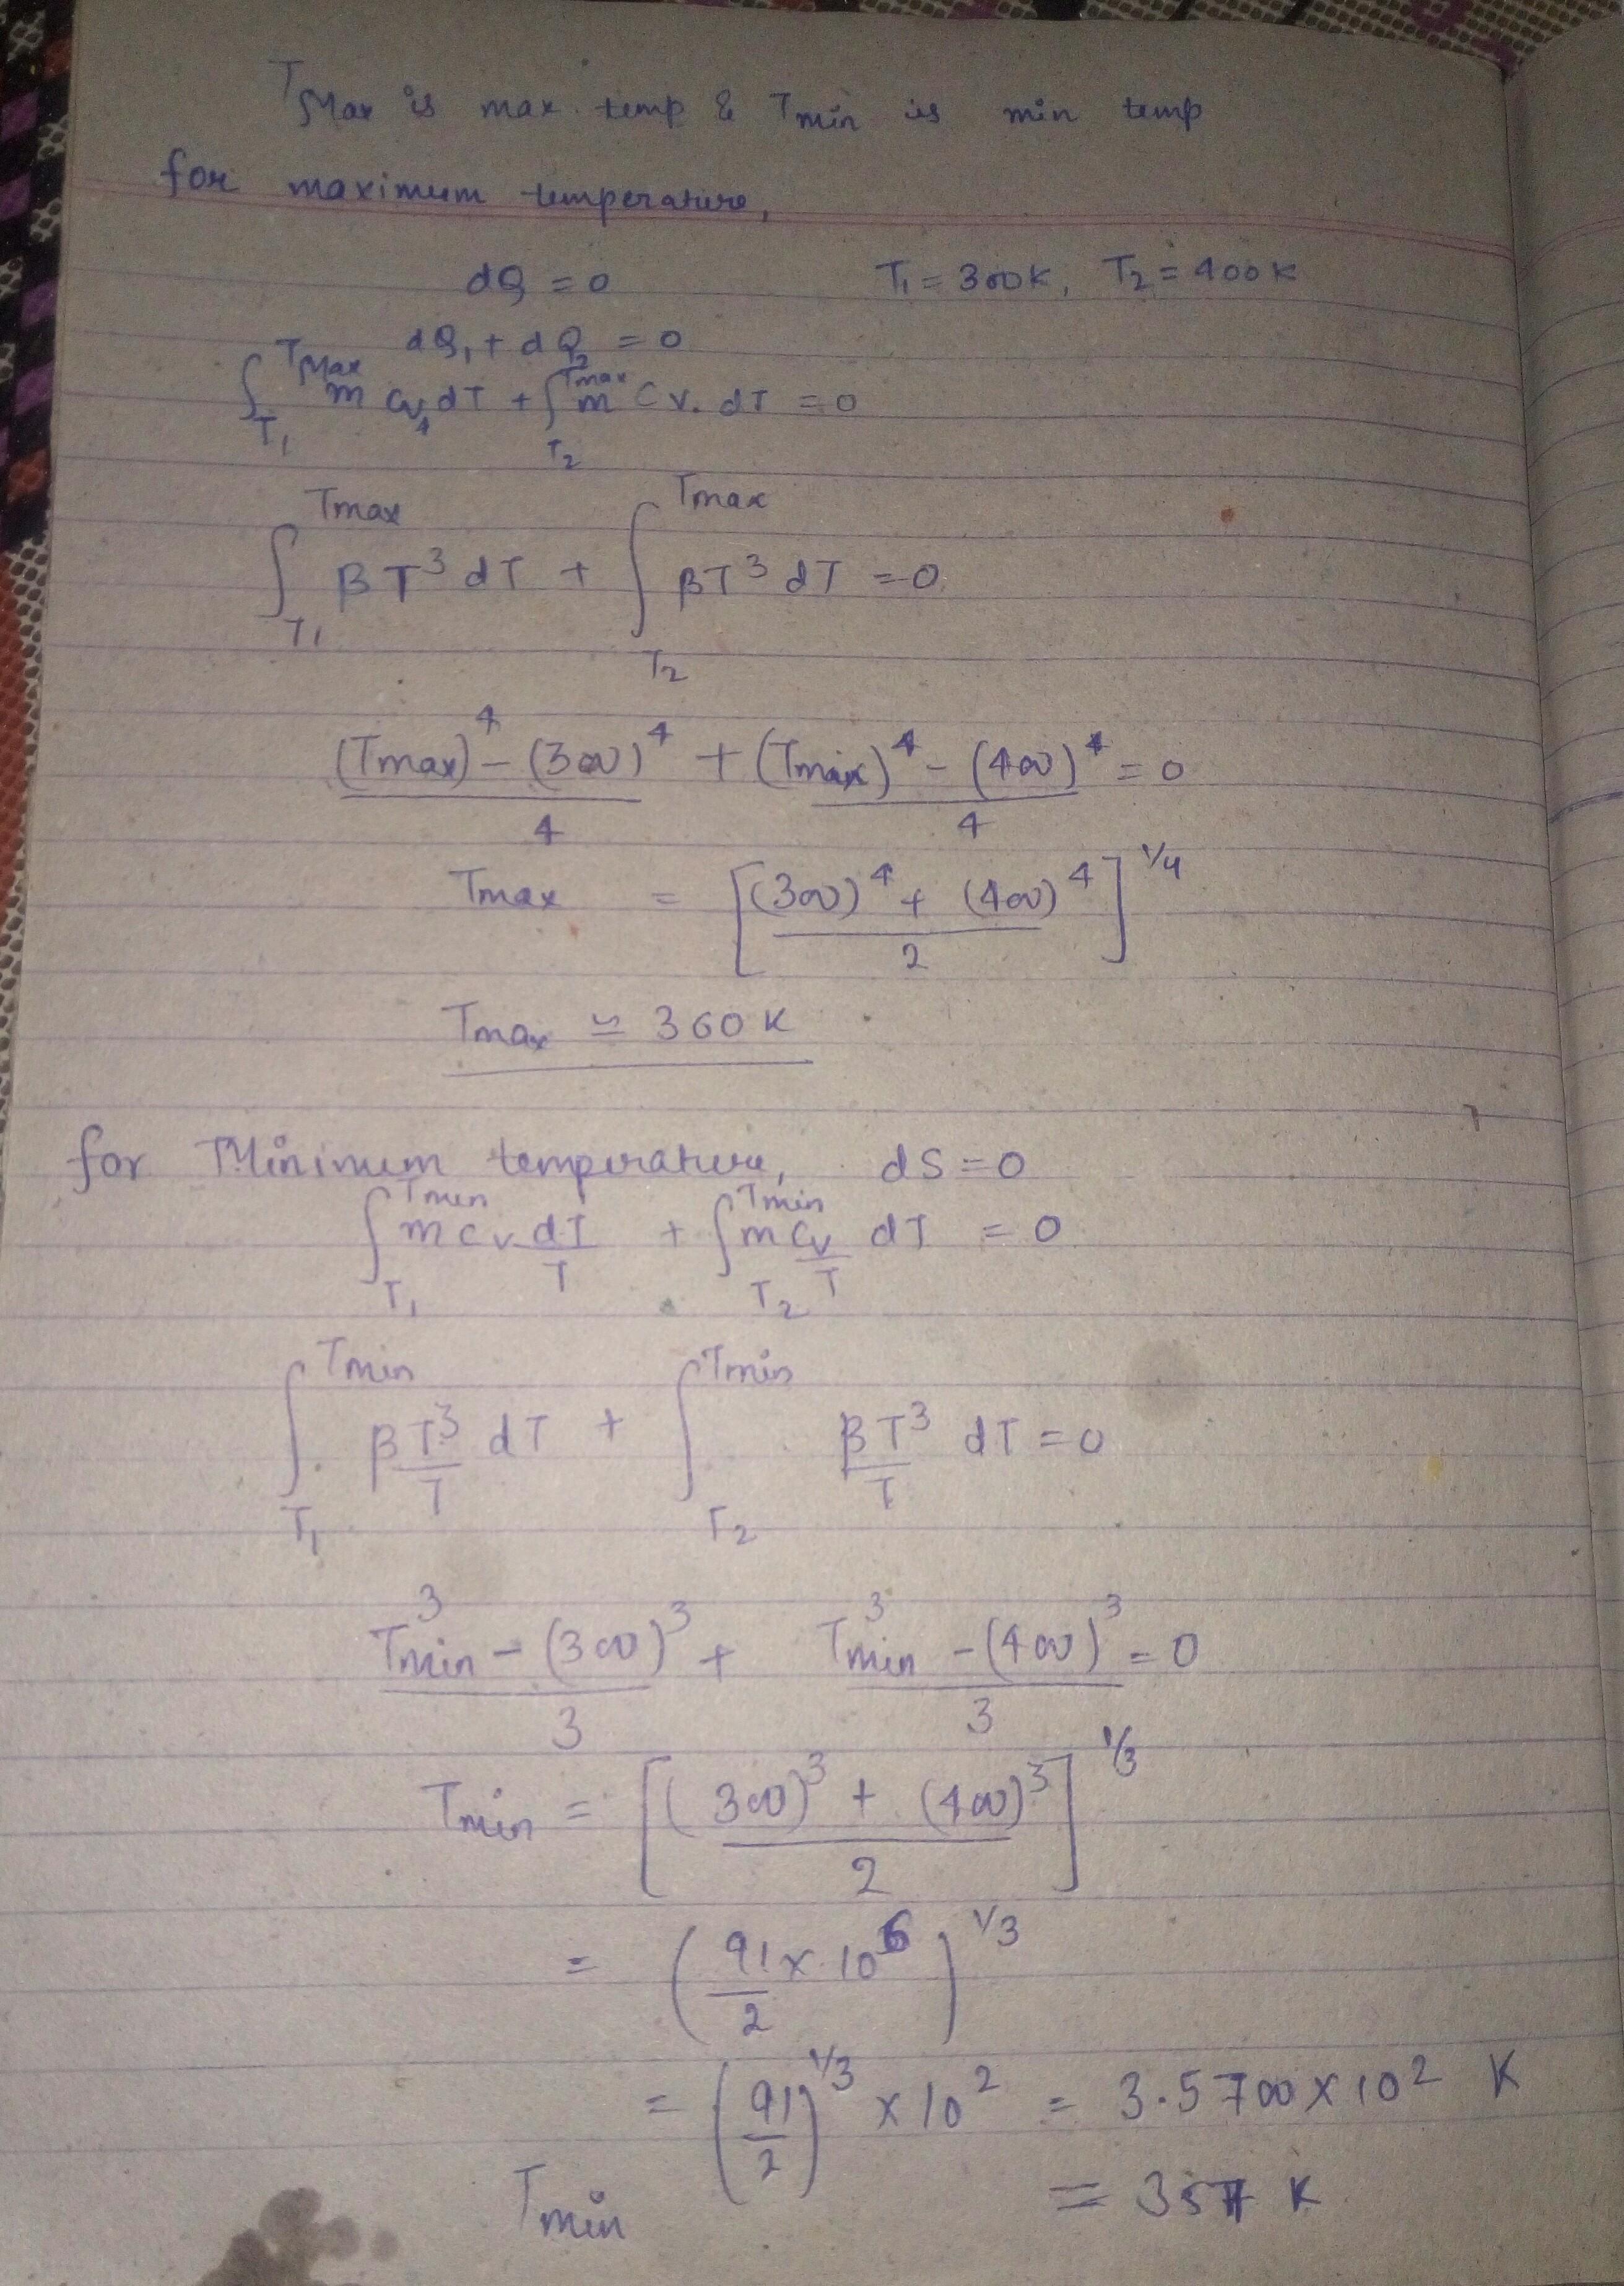 TMax is max. temp & Tmin is min temp
for maximum temperature,
dQ = 0 T1 = 300K, T2 = 400K
dQ1 + dQ2 = 0
∫_{T1}^{TMax} m Cv dT + ∫_{T2}^{Tmax} m Cv. dT = 0
∫_{T1}^{Tmax} βT^3 dT + ∫_{T2}^{Tmax} βT^3 dT = 0
((Tmax)^4 - (300)^4)/4 + ((Tmax)^4 - (400)^4)/4 = 0
Tmax = [((300)^4 + (400)^4)/2]^{1/4}
Tmax ≃ 360 K
for Minimum temperature, dS = 0
∫_{T1}^{Tmin} m Cv dT/T + ∫_{T2}^{Tmin} m Cv/T dT = 0
∫_{T1}^{Tmin} βT^3/T dT + ∫_{T2}^{Tmin} βT^3/T dT = 0
(Tmin^3 - (300)^3)/3 + (Tmin^3 - (400)^3)/3 = 0
Tmin = [((300)^3 + (400)^3)/2]^{1/3}
= (91/2 × 10^6)^{1/3}
= (91/2)^{1/3} × 10^2 = 3.5700 × 10^2 K
Tmin = 357 K